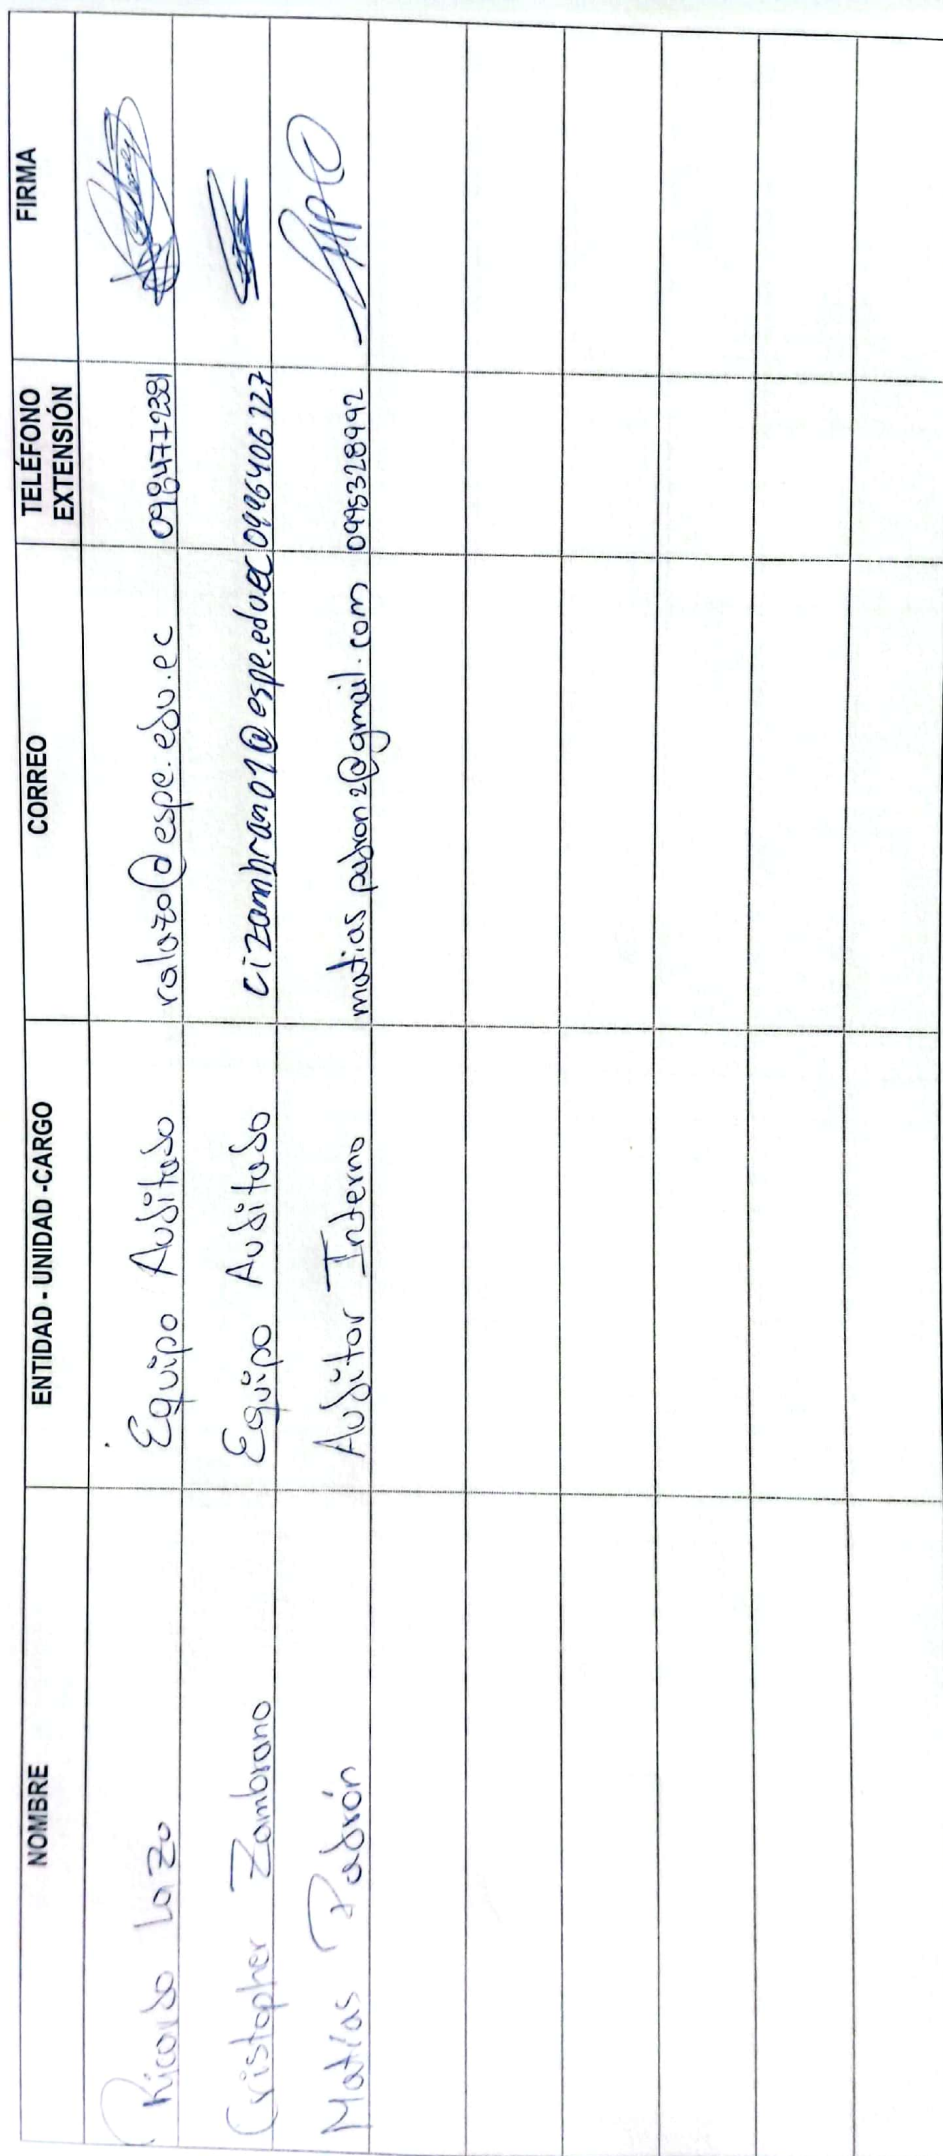 NOMBRE ENTIDAD - UNIDAD -CARGO CORREO TELÉFONO EXTENSIÓN FIRMA
Ricardo Lazo Equipo Auditado ralazo@espe.edu.ec 0984772381
Cristopher Zambrano Equipo Auditado cizambrano1@espe.edu.ec 0996406127
Matías Padrón Auditor Interno matiaspadron2@gmail.com 0995328992